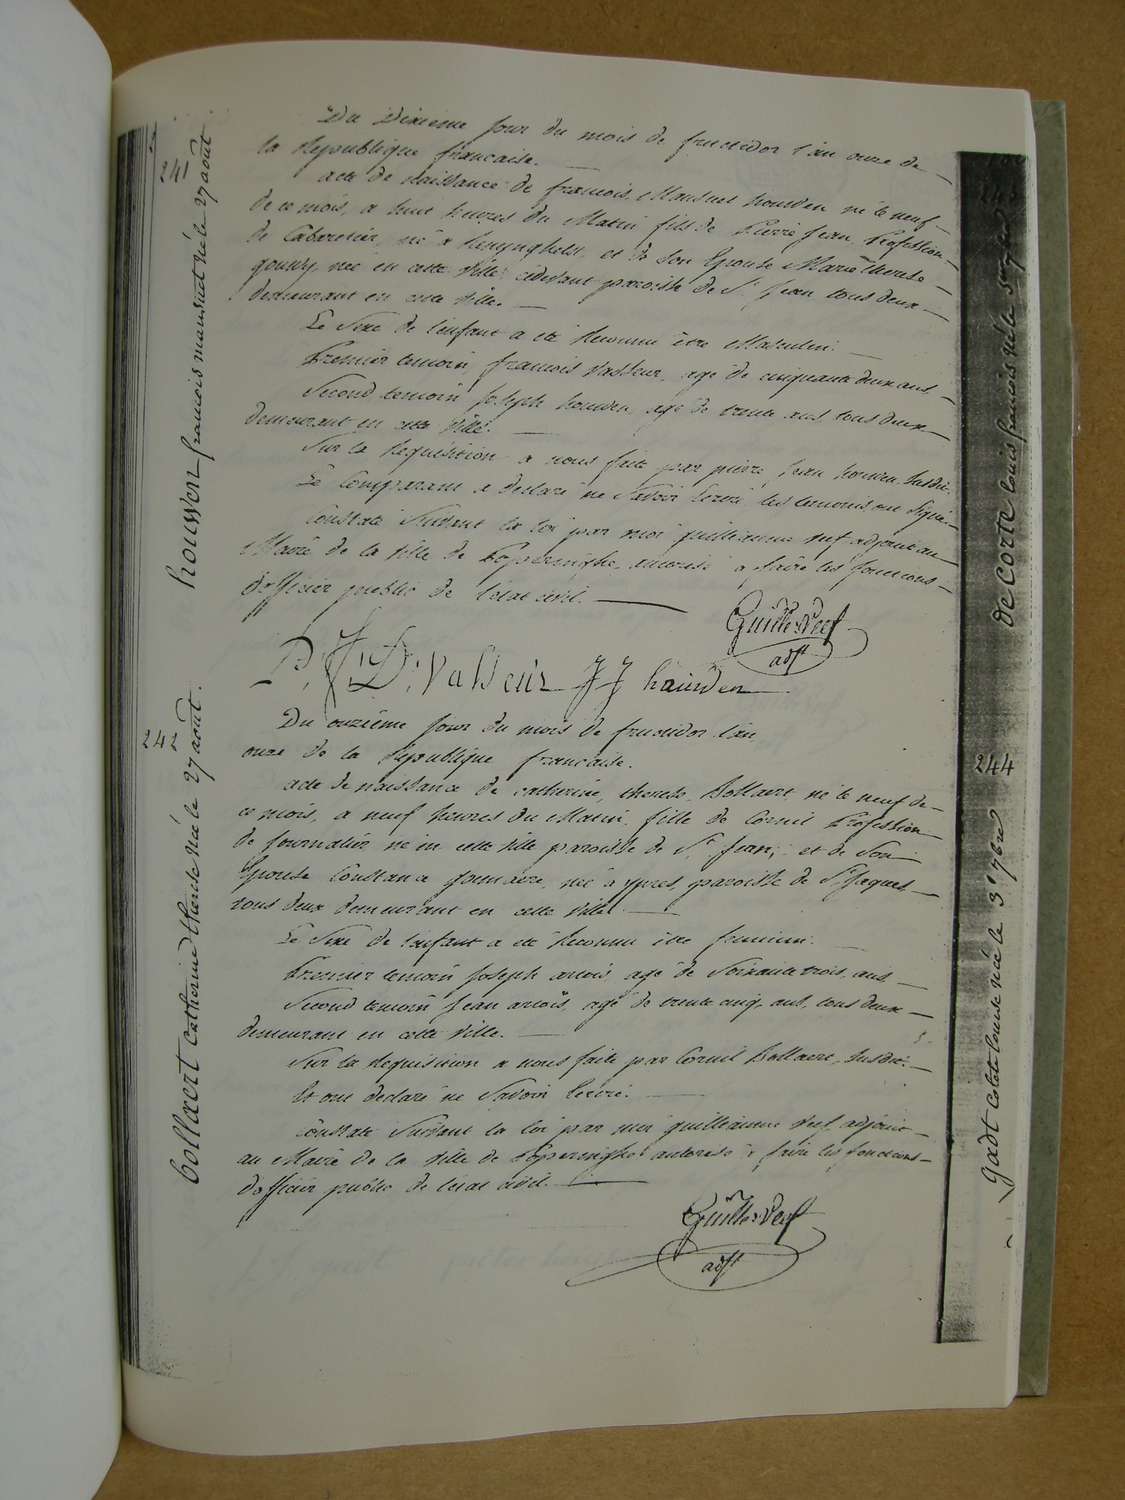 241
houwen francois mansuet né le 27 août.
Du Dixieme jour du mois de fructidor l'an onze de
la Republique francaise.
acte de naissance de francois Mansuet houwen né le neuf
de ce mois, a huit heures du Matin fils de Pierre Jean, Profession
de Cabaretier, né a Renynghelst, et de son Epouse Marie therese
gouwy, née en cette Ville cidevant paroisse de St Jean tous deux
demeurant en cette Ville.
Le Sexe de l'enfant a été Reconnu être Masculin.
Premier temoin, francois Vasseur, agé de cinquante deux ans
Second temoin Joseph houwen agé de trente ans, tous deux
demeurant en cette Ville.
Sur la Requisition a nous faite par pierre Jean houwen susdit.
Le Comparant a declaré ne Savoir ecrire les temoins ont signé
Constaté Suivant la loi par moi guilliaume Verf adjoint au
Maire de la Ville de Poperinghe, autorisé a faire les fonctions
d'officier public de l'etat civil.
Guille Verf
adjt
P. J. D. Vasseur JJ hauwen
242
bollaert Catherine therese née le 27 août.
Du onzième jour du mois de fructidor l'an
onze de la Republique francaise.
acte de naissance de catherine, therese, Bollaert, né le neuf de
ce mois, a neuf heures du Matin, fille de Corneil Profession
de journalier né en cette Ville paroisse de St Jean, et de Son
Epouse Constance, née a ypres, paroisse de St Jaques
tous deux demeurant en cette Ville.
Le Sexe de l'enfant a été Reconnu être feminin.
Premier temoin Joseph artois, agé de Soixante trois ans
Second temoin Jean artois, agé de trente cinq ans, tous deux
demeurant en cette Ville.
Sur la Requisition a nous faite par Corneil Bollaert, susdit.
Et ont declaré ne Savoir Ecrire.
Constaté Suivant la loi par moi guilliaume Verf adjoint
au Maire de la Ville de Poperinghe autorisé a faire les fonctions
d'officier public de l'etat civil.
Guille Verf
adjt
243
de Corte Louis francois né le
244
gadt Colete Louise née le 3e 7bre